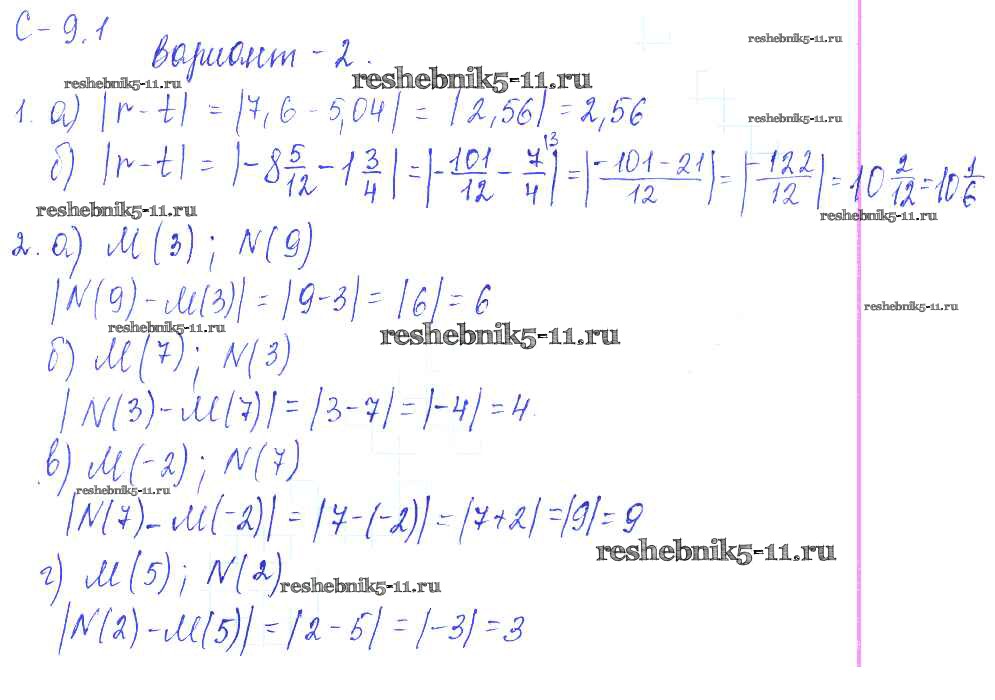 С-9.1
Вариант-2.
reshebnik5-11.ru
reshebnik5-11.ru
reshebnik5-11.ru
1. а) |r-t| = |7,6-5,04| = |2,56| = 2,56
reshebnik5-11.ru
б) |r-t| = |-8 5/12 - 1 3/4| = |-101/12 - 7/4 |3| = |-101-21/12| = |-122/12| = 10 2/12 = 10 1/6
reshebnik5-11.ru
reshebnik5-11.ru
2. а) M(3); N(9)
|N(9)-M(3)| = |9-3| = |6| = 6
reshebnik5-11.ru
reshebnik5-11.ru
reshebnik5-11.ru
б) M(7); N(3)
|N(3)-M(7)| = |3-7| = |-4| = 4.
в) M(-2); N(7)
reshebnik5-11.ru
|N(7)-M(-2)| = |7-(-2)| = |7+2| = |9| = 9
reshebnik5-11.ru
г) M(5); N(2)
reshebnik5-11.ru
|N(2)-M(5)| = |2-5| = |-3| = 3